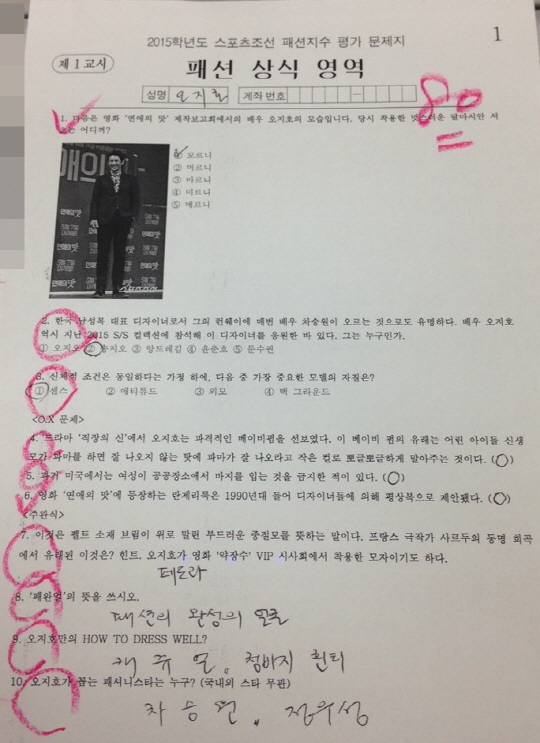 1
2015학년도 스포츠조선 패션지수 평가 문제지
제 1 교시
패션 상식 영역
성명 오지호 계좌 번호
80
1. 다음은 영화 '연애의 맛' 제작보고회에서의 배우 오지호의 모습입니다. 당시 착용한 멋스러운 달마시안 서
는 어디꺼?
① 모르니
② 머르니
③ 마르니
④ 미르니
⑤ 메르니
2. 한국 남성복 대표 디자이너로서 그의 런웨이에 매번 배우 차승원이 오르는 것으로도 유명하다. 배우 오지호
역시 지난 2015 S/S 컬렉션에 참석해 이 디자이너를 응원한 바 있다. 그는 누구인가.
① 오지오 ② 송지오 ③ 앙드레김 ④ 윤춘호 ⑤ 문수권
3. 신체적 조건은 동일하다는 가정 하에, 다음 중 가장 중요한 모델의 자질은?
① 센스 ② 애티튜드 ③ 외모 ④ 백 그라운드
<O.X 문제>
4. 드라마 '직장의 신'에서 오지호는 파격적인 베이비펌을 선보였다. 이 베이비 펌의 유래는 어린 아이들 신생
모가 파마를 하면 잘 나오지 않는 탓에 파마가 잘 나오라고 작은 컬로 뽀글뽀글하게 말아주는 것이다. (O)
5. 과거 미국에서는 여성이 공공장소에서 바지를 입는 것을 금지한 적이 있다. (O)
6. 영화 '연애의 맛'에 등장하는 란제리룩은 1990년대 들어 디자이너들에 의해 평상복으로 제안됐다. (O)
<주관식>
7. 이것은 펠트 소재 브림이 위로 말린 부드러운 중절모를 뜻하는 말이다. 프랑스 극작가 사르두의 동명 희곡
에서 유래된 이것은? 힌트. 오지호가 영화 '약장수' VIP 시사회에서 착용한 모자이기도 하다.
페도라
8. '패완얼'의 뜻을 쓰시오.
패션의 완성의 얼굴
9. 오지호만의 HOW TO DRESS WELL?
캐쥬얼, 청바지 흰티
10. 오지호가 꼽는 패셔니스타는 누구? (국내외 스타 무관)
차승원, 정우성